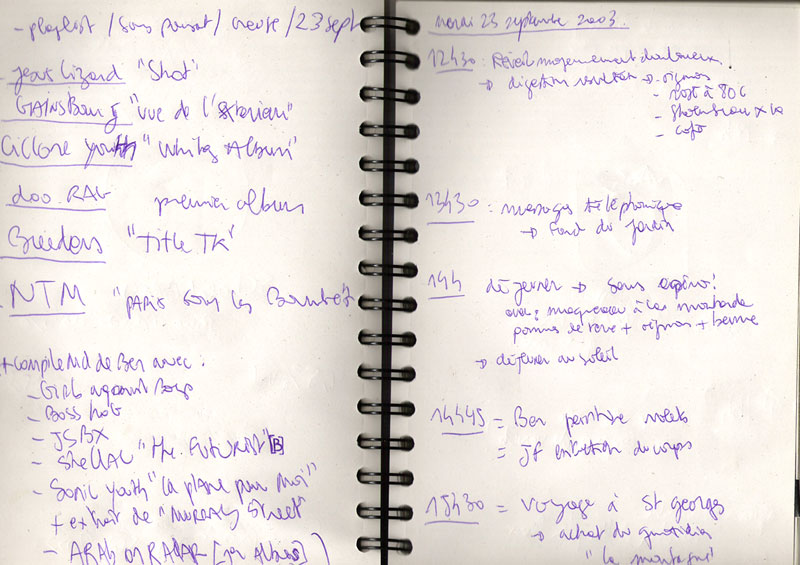 - playlist / Sous parsat / creuse / 23 sept
- jesus lizard "Shot"
GAINSBourg "vue de l'exterieur"
Ciccone youth "Whitey Album"
doo.RAG premier album
Breeders "Title TK"
NTM "PARIS sous les Bombes"
+ compile Md de Ben avec :
- Girls against Boys
- Boss hog
- JSBX
- SheLLAC "the FUTURIST"
- Sonic youth "ça plane pour moi"
+ extrait de "Murray Street"
- ARAb on RADAR [1er Album] )
mardi 23 septembre 2003.
12h30 : Réveil moyennement douloureux.
→ digestion → oignons
- rosé à 80c
-
- café
13h30 : messages téléphonique
→ fond du jardin
14h déjeuner → sans apéro !
avec maquereau à la moutarde
pommes de terre + oignons + beurre
→ déjeuner au soleil
14h45 = Ben peinture volets
= Jf entretien du corps
15h30 = voyage à St georges
→ achat du quotidien
"la montagne"